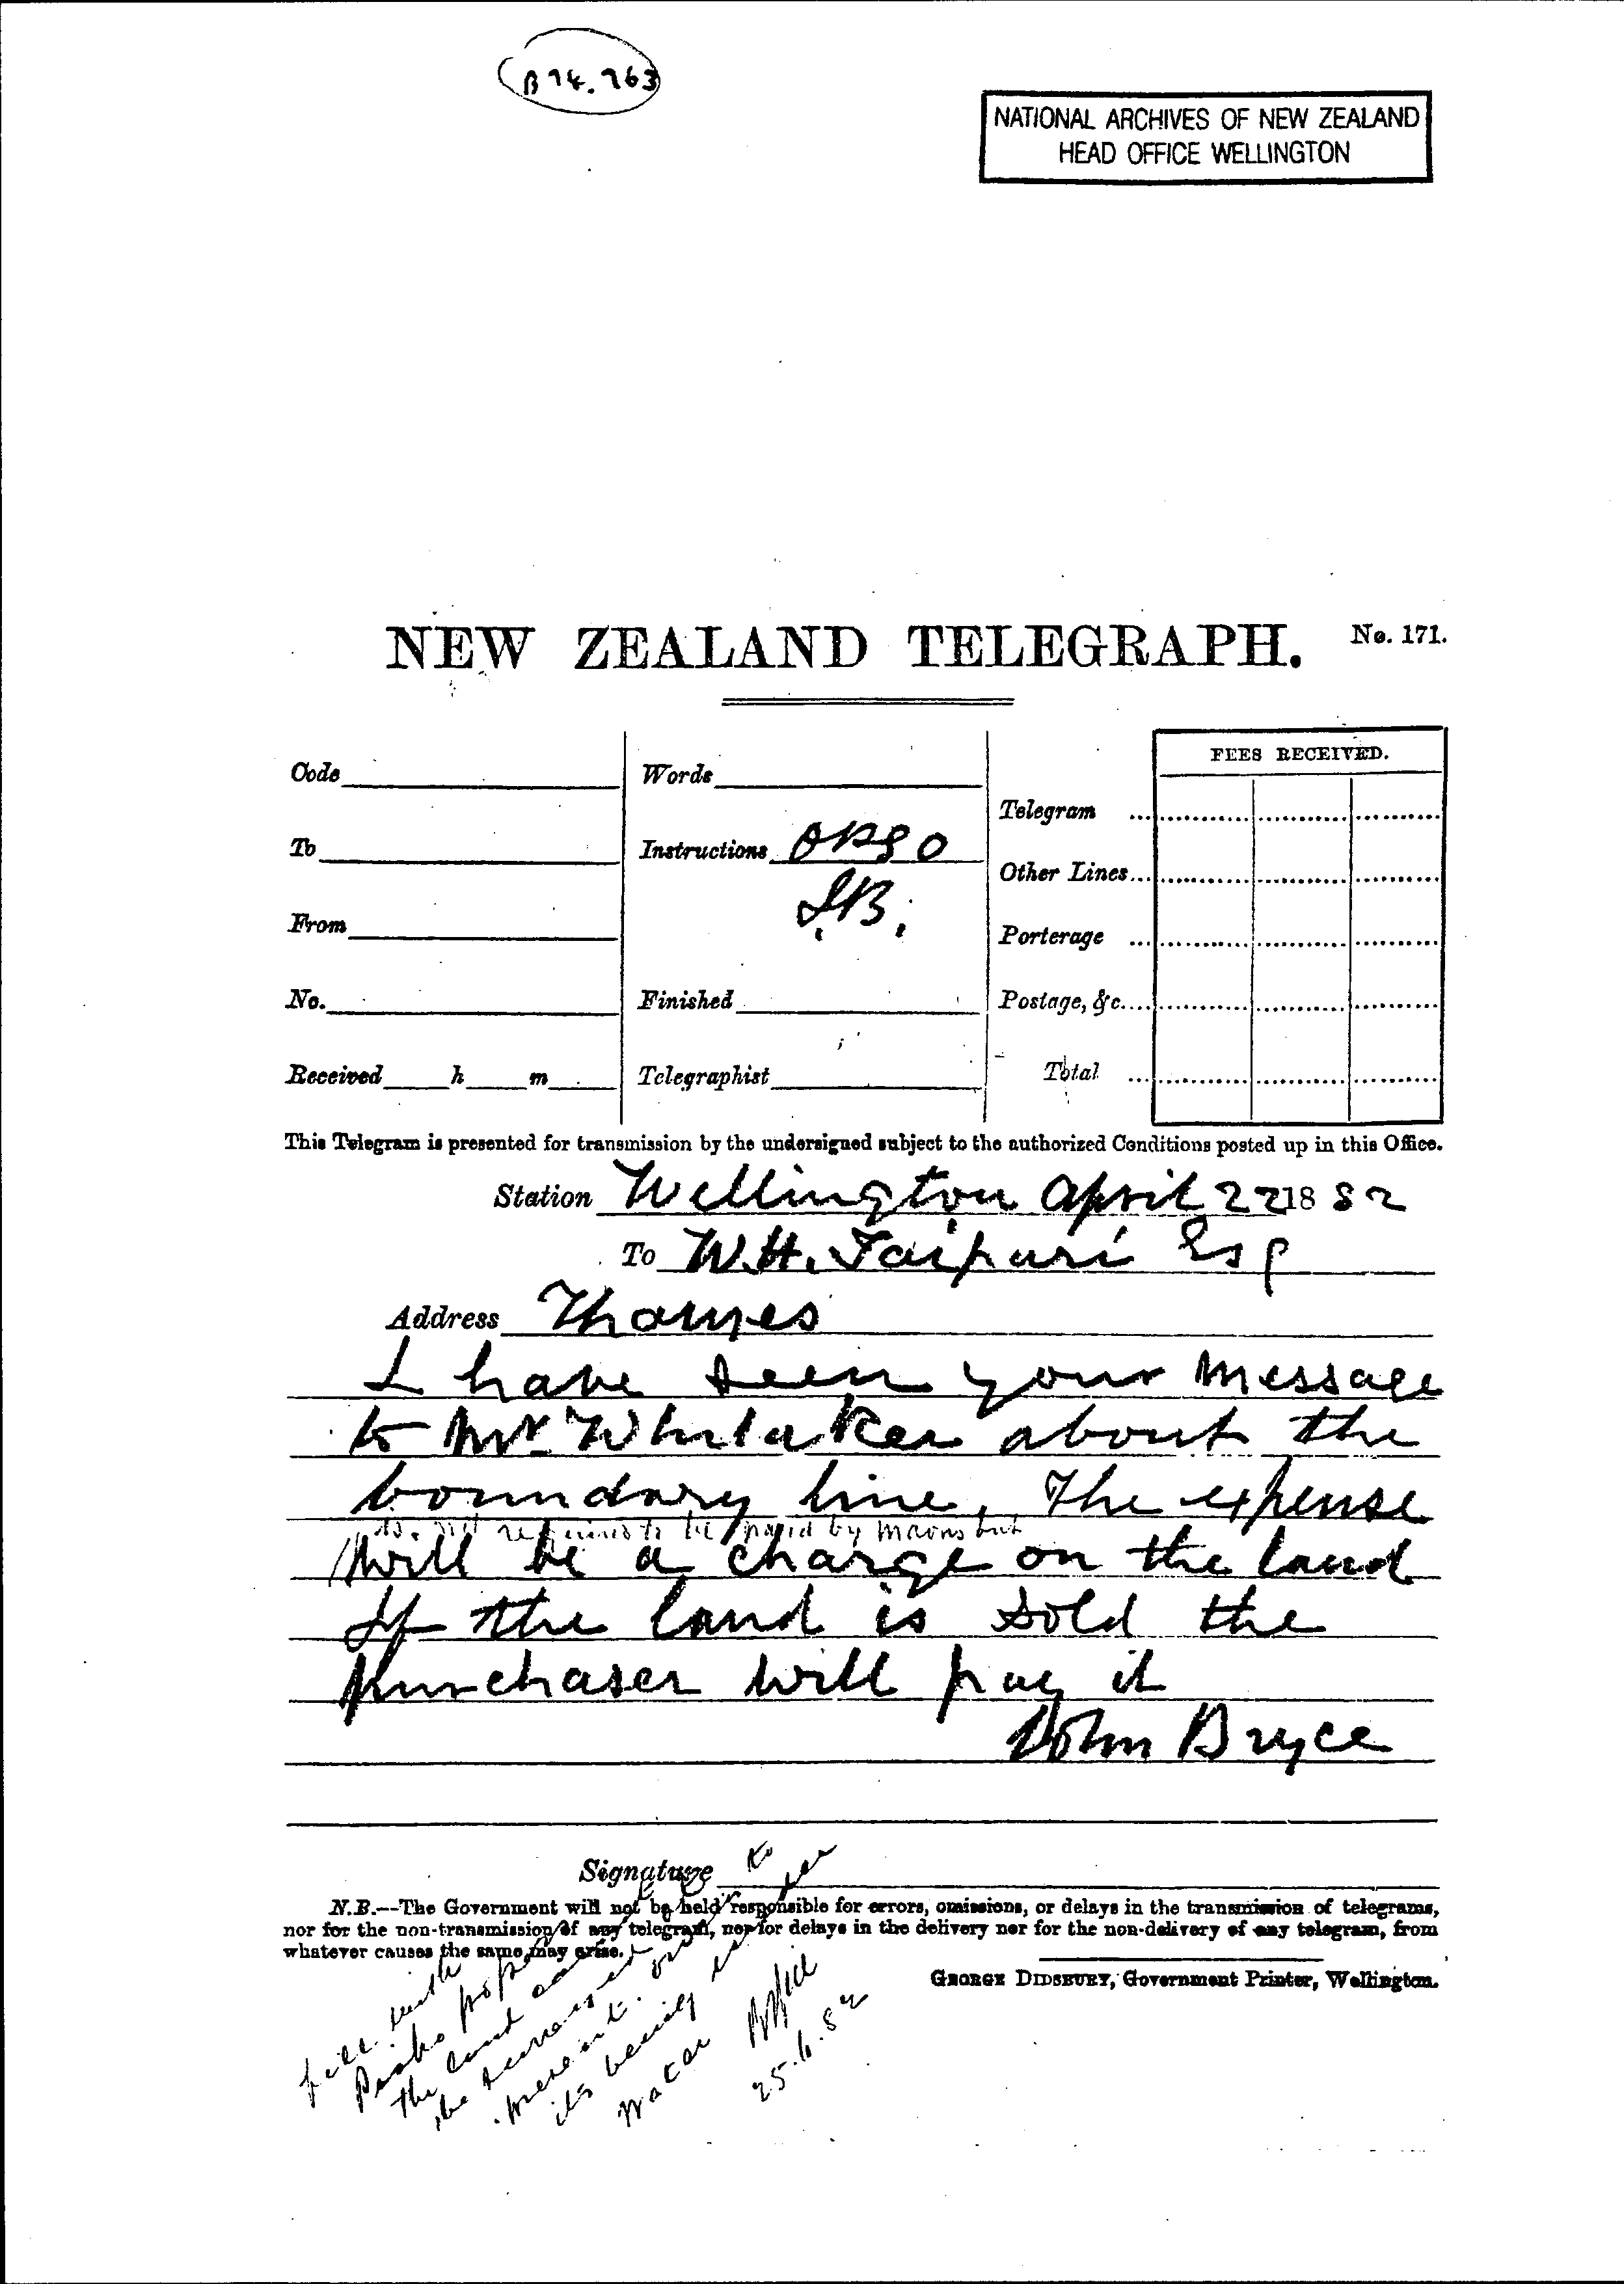 B74.763
NATIONAL ARCHIVES OF NEW ZEALAND
HEAD OFFICE WELLINGTON
NEW ZEALAND TELEGRAPH. No. 171.
FEES RECEIVED.
Code Words
Telegram
To Instructions OPSO
Other Lines
J.B.
From
Porterage
No. Finished Postage, &c.
Received h m Telegraphist Total
This Telegram is presented for transmission by the undersigned subject to the authorized Conditions posted up in this Office.
Station Wellington April 22 1882
To W.H. Taipari Esq
Address Thames
I have seen your message
to Mr Whitaker about the
boundary line, The expense
is not required to be paid by maoris but
will be a charge on the land
If the land is sold the
purchaser will pay it
John Bryce
Signature
N.B.—The Government will not be held responsible for errors, omissions, or delays in the transmission of telegrams,
nor for the non-transmission of any telegram, nor for delays in the delivery nor for the non-delivery of any telegram, from
whatever causes the same may arise.
GEORGE DIDSBURY, Government Printer, Wellington.
file with
the land
its being
25.4.82